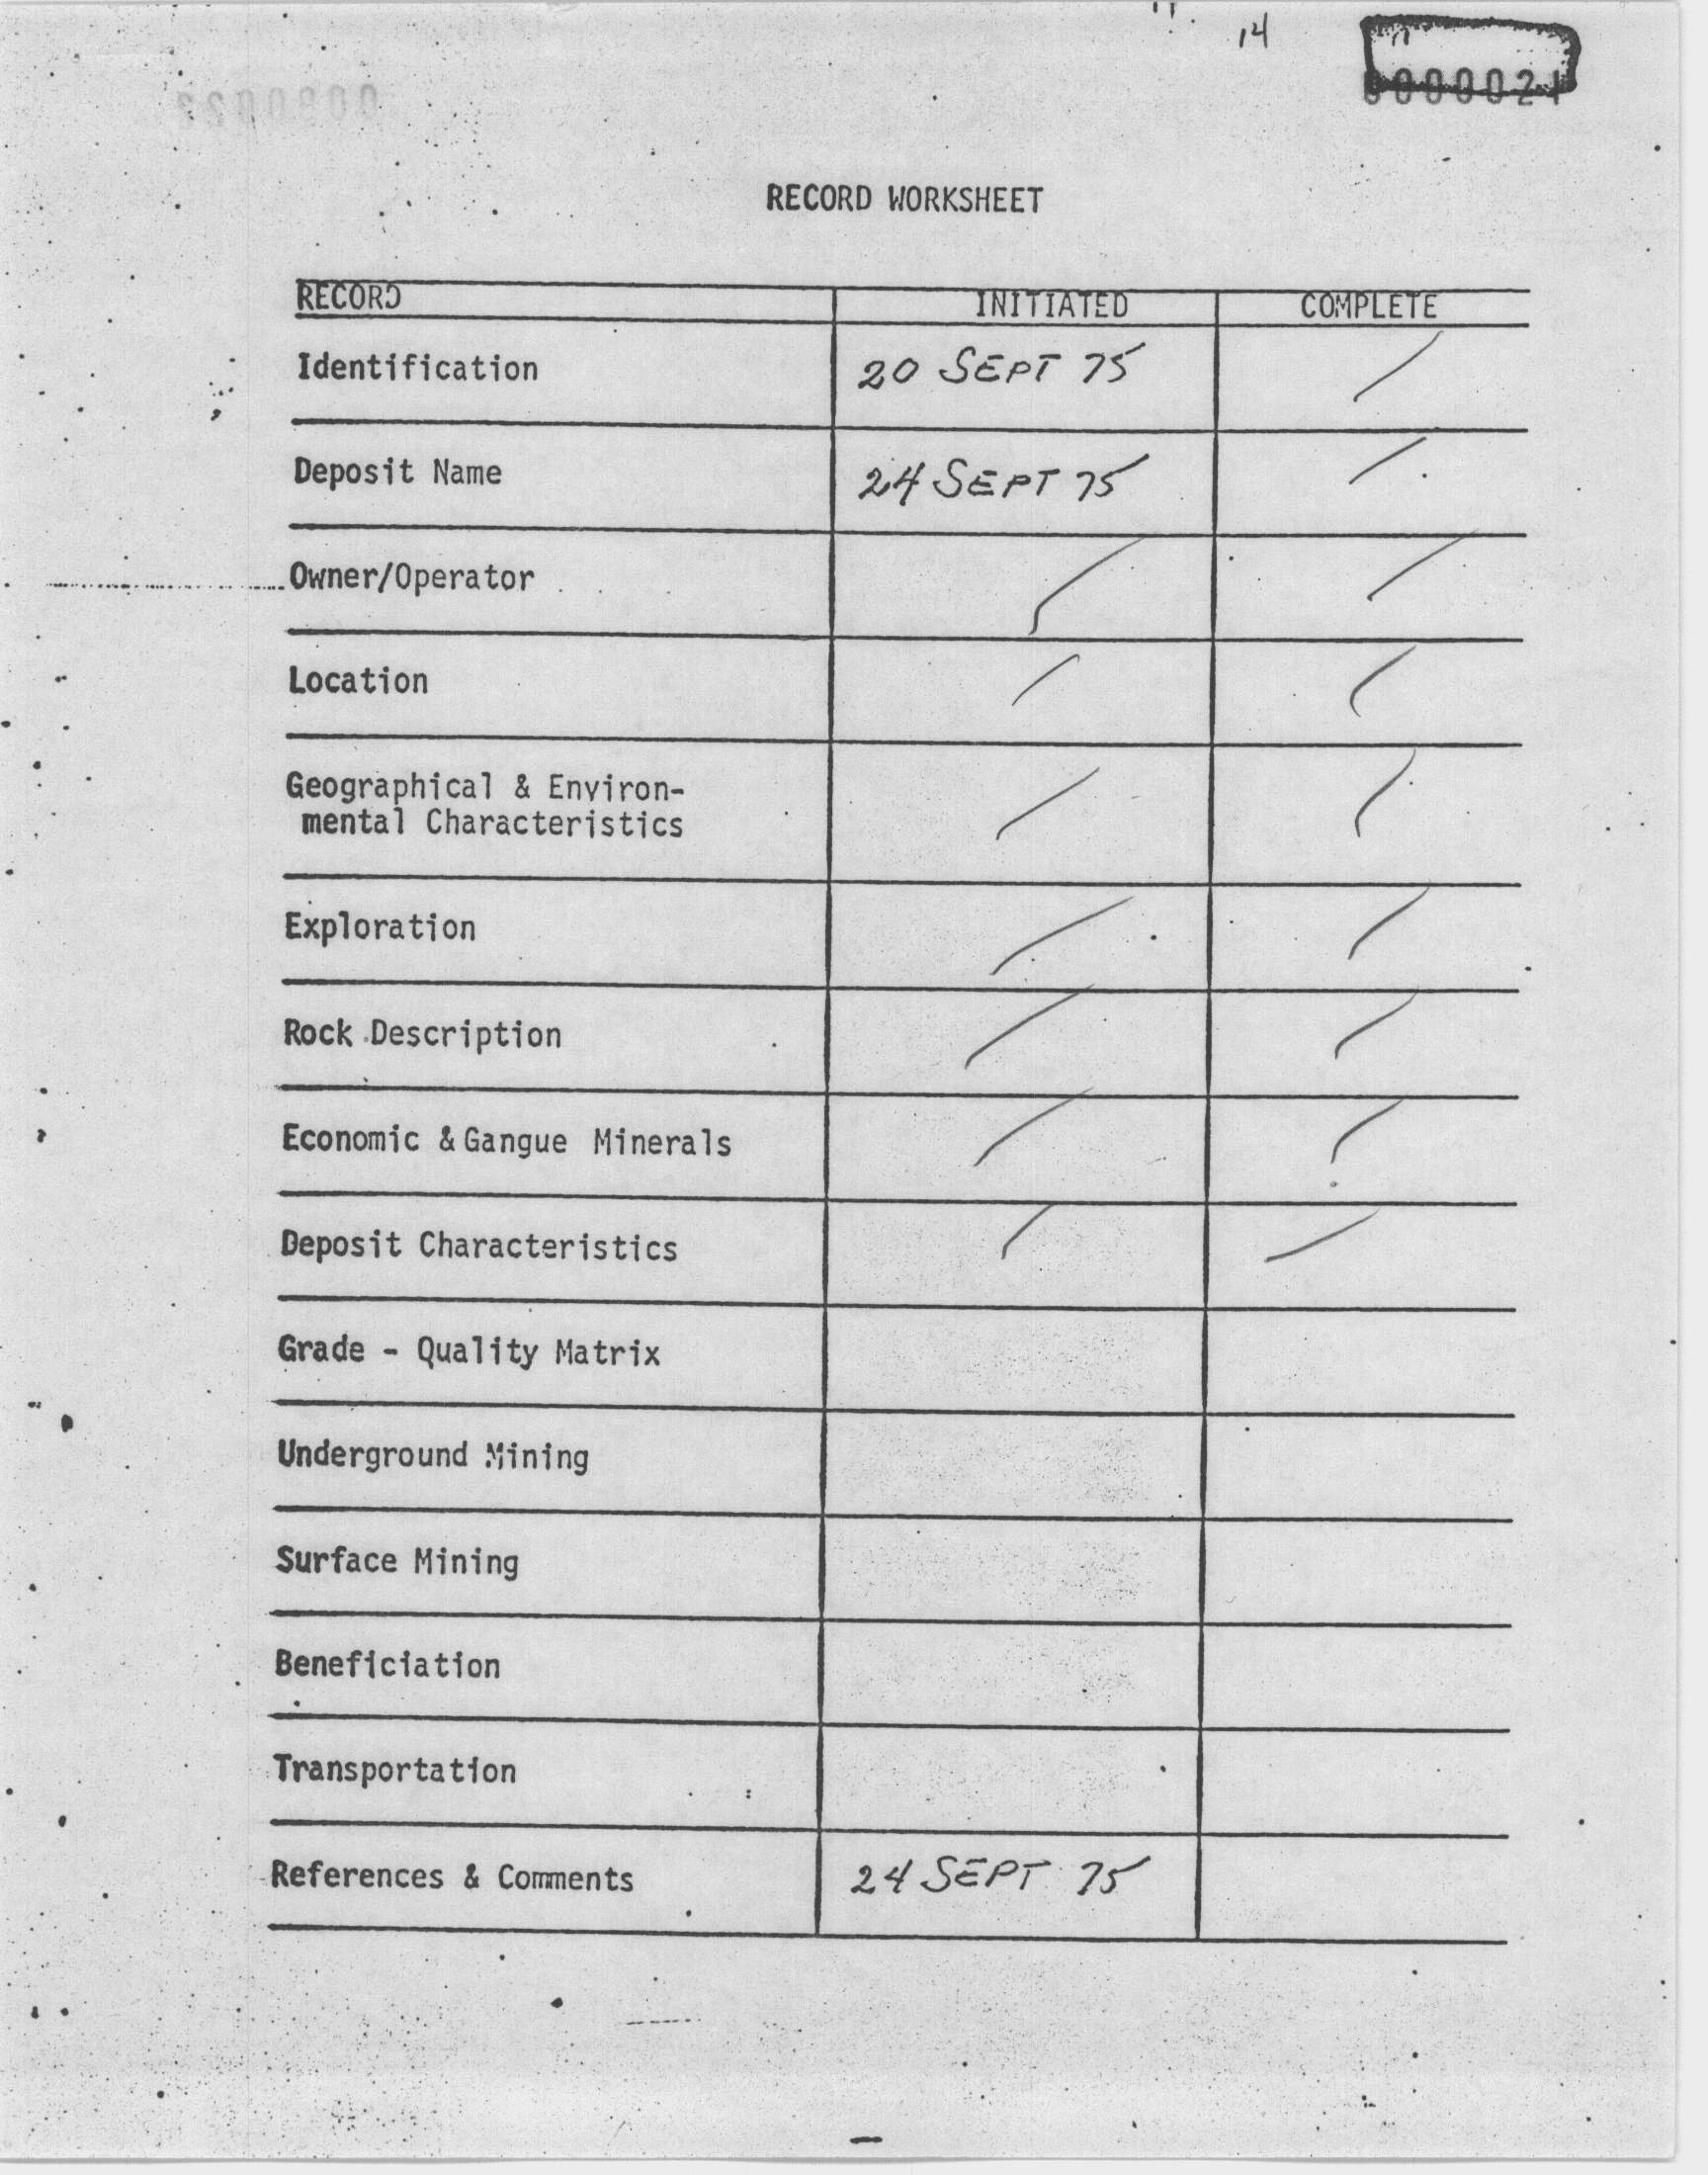 14
0000021
RECORD WORKSHEET
RECORD INITIATED COMPLETE
Identification 20 SEPT 75 /
Deposit Name 24 SEPT 75 /
Owner/Operator / /
Location / /
Geographical & Environ- / /
mental Characteristics
Exploration / /
Rock Description / /
Economic & Gangue Minerals / /
Deposit Characteristics / /
Grade - Quality Matrix
Underground Mining
Surface Mining
Beneficiation
Transportation
References & Comments 24 SEPT 75